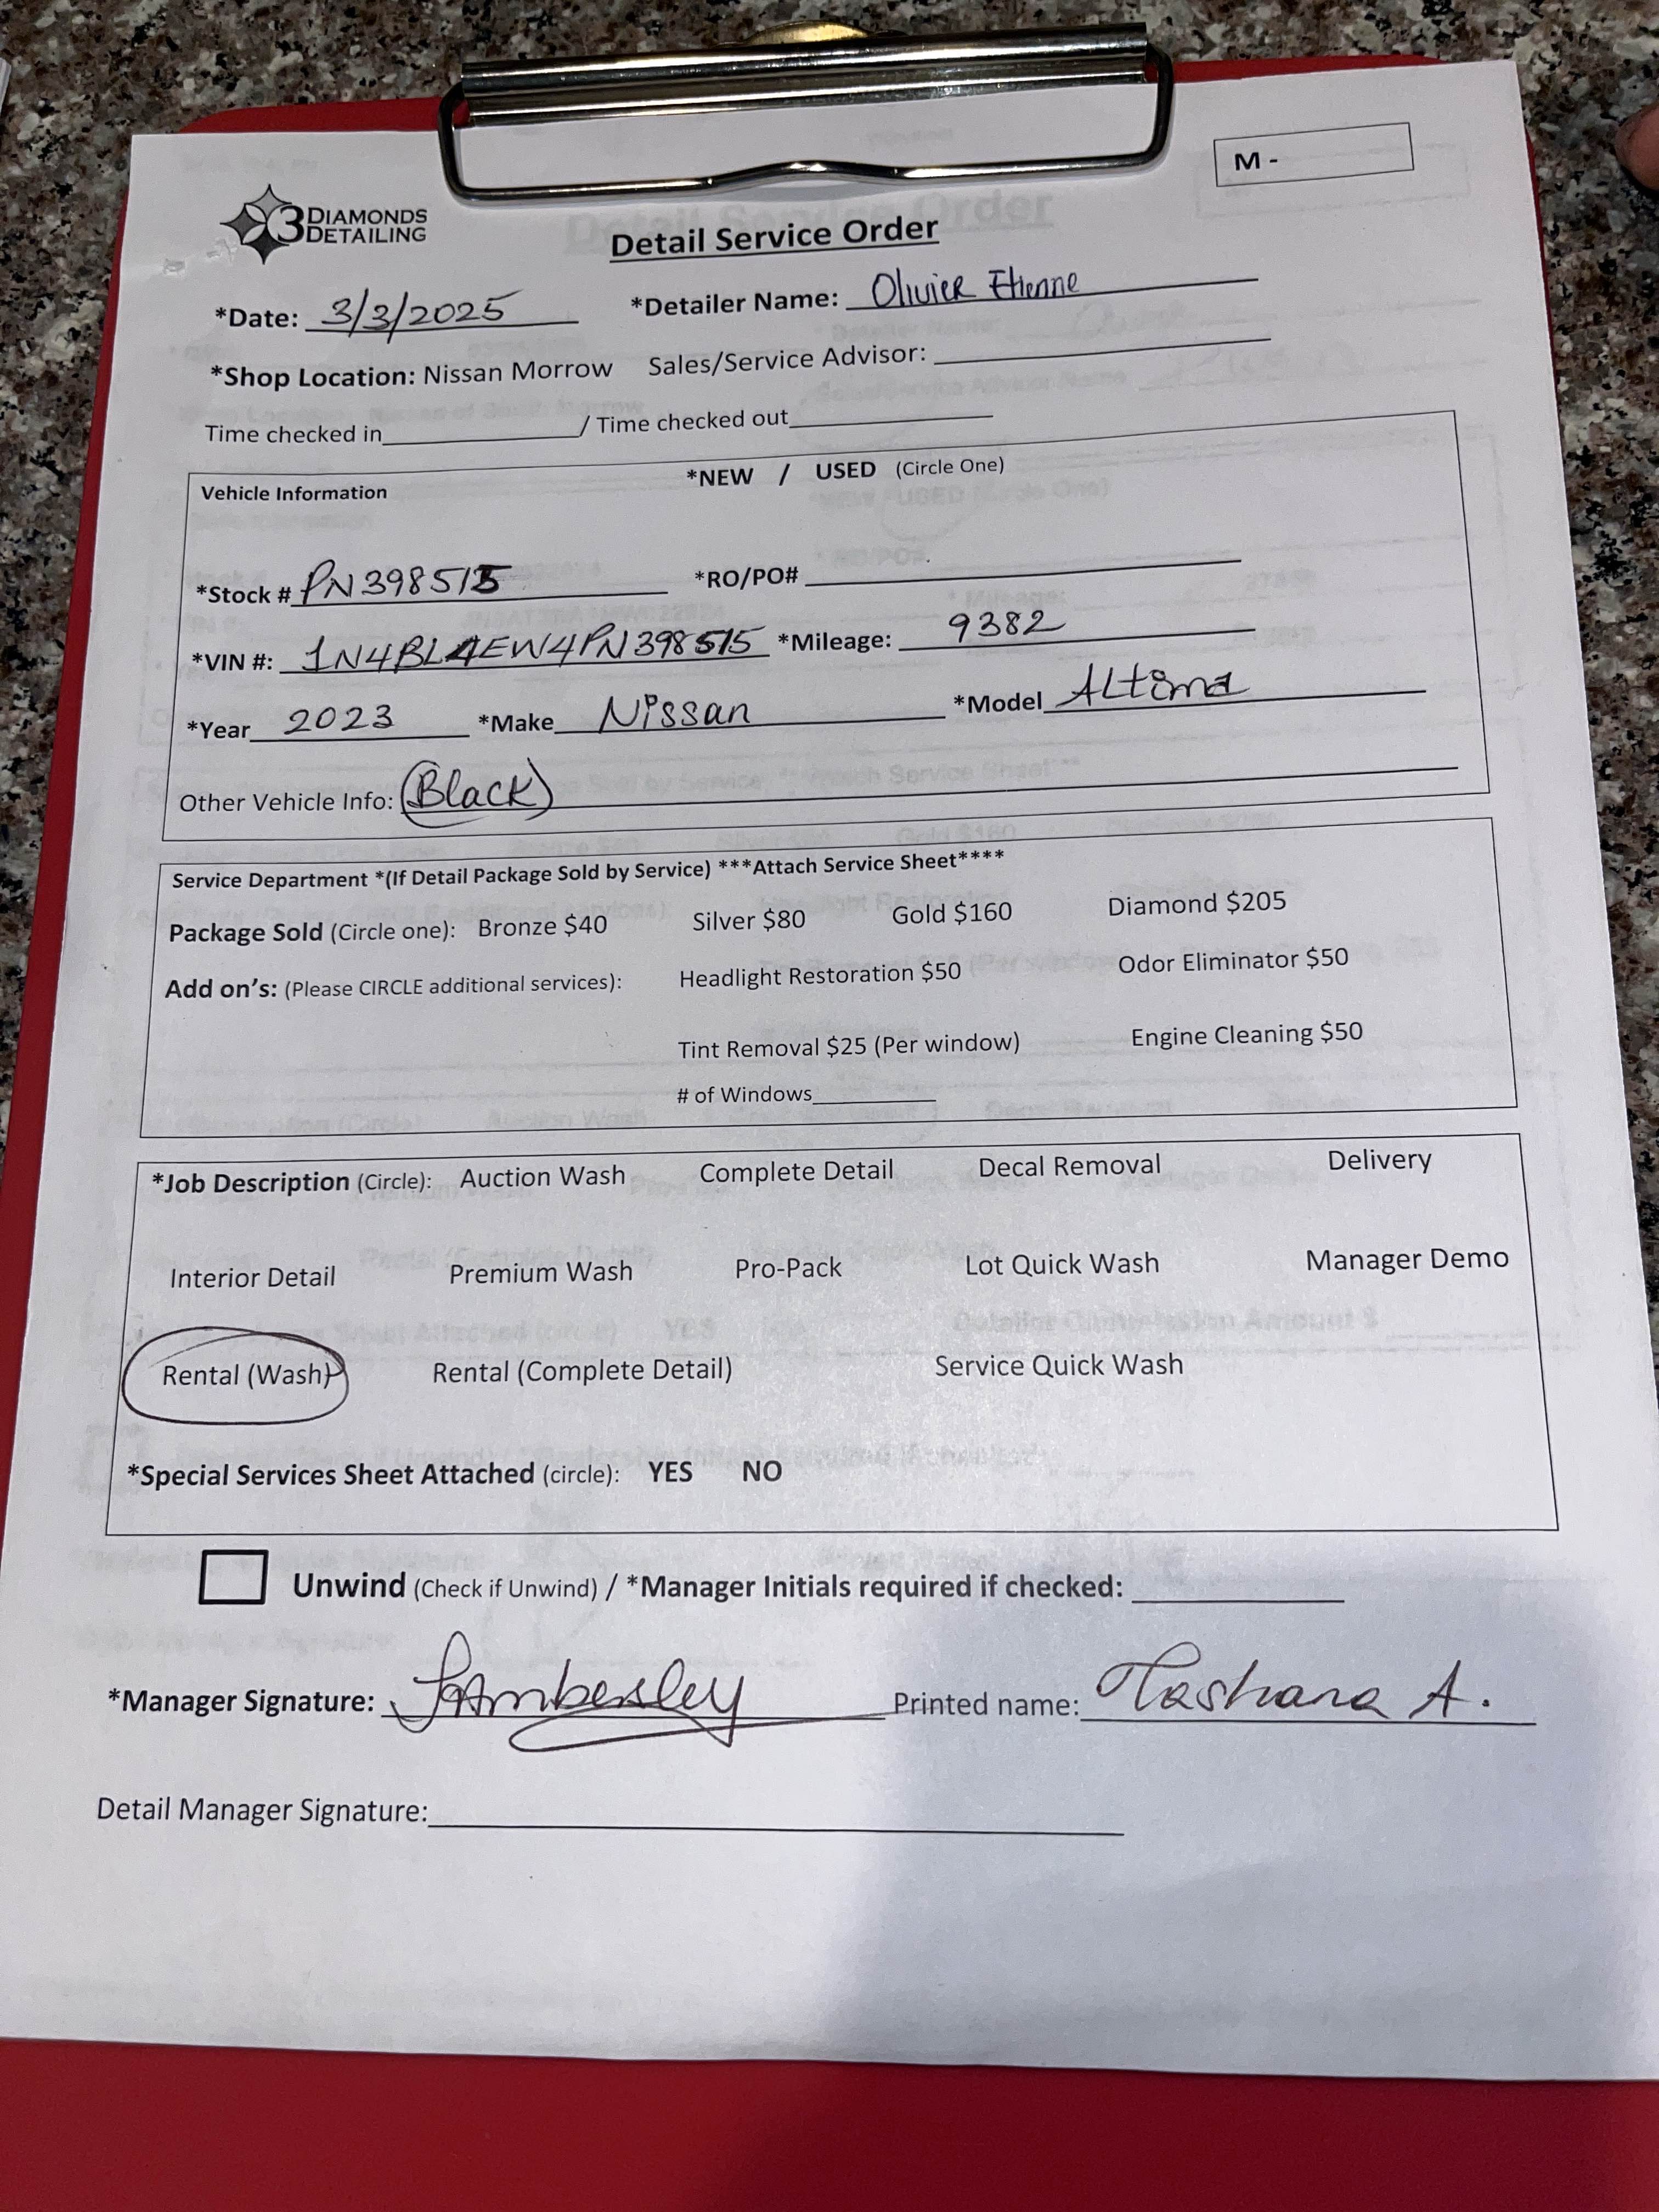 M -
3 DIAMONDS
DETAILING
Detail Service Order
*Date: 3/3/2025 *Detailer Name: Olivier Etienne
*Shop Location: Nissan Morrow Sales/Service Advisor:
Time checked in / Time checked out
Vehicle Information *NEW / USED (Circle One)
*Stock # PN398515 *RO/PO#
*VIN #: 1N4BL4EW4PN398515 *Mileage: 9382
*Year 2023 *Make Nissan *Model Altima
Other Vehicle Info: Black
Service Department *(If Detail Package Sold by Service) ***Attach Service Sheet****
Package Sold (Circle one): Bronze $40 Silver $80 Gold $160 Diamond $205
Add on's: (Please CIRCLE additional services): Headlight Restoration $50 Odor Eliminator $50
Tint Removal $25 (Per window) Engine Cleaning $50
# of Windows
*Job Description (Circle): Auction Wash Complete Detail Decal Removal Delivery
Interior Detail Premium Wash Pro-Pack Lot Quick Wash Manager Demo
Rental (Wash) Rental (Complete Detail) Service Quick Wash
*Special Services Sheet Attached (circle): YES NO
Unwind (Check if Unwind) / *Manager Initials required if checked:
*Manager Signature: Printed name: Tashana A.
Detail Manager Signature: